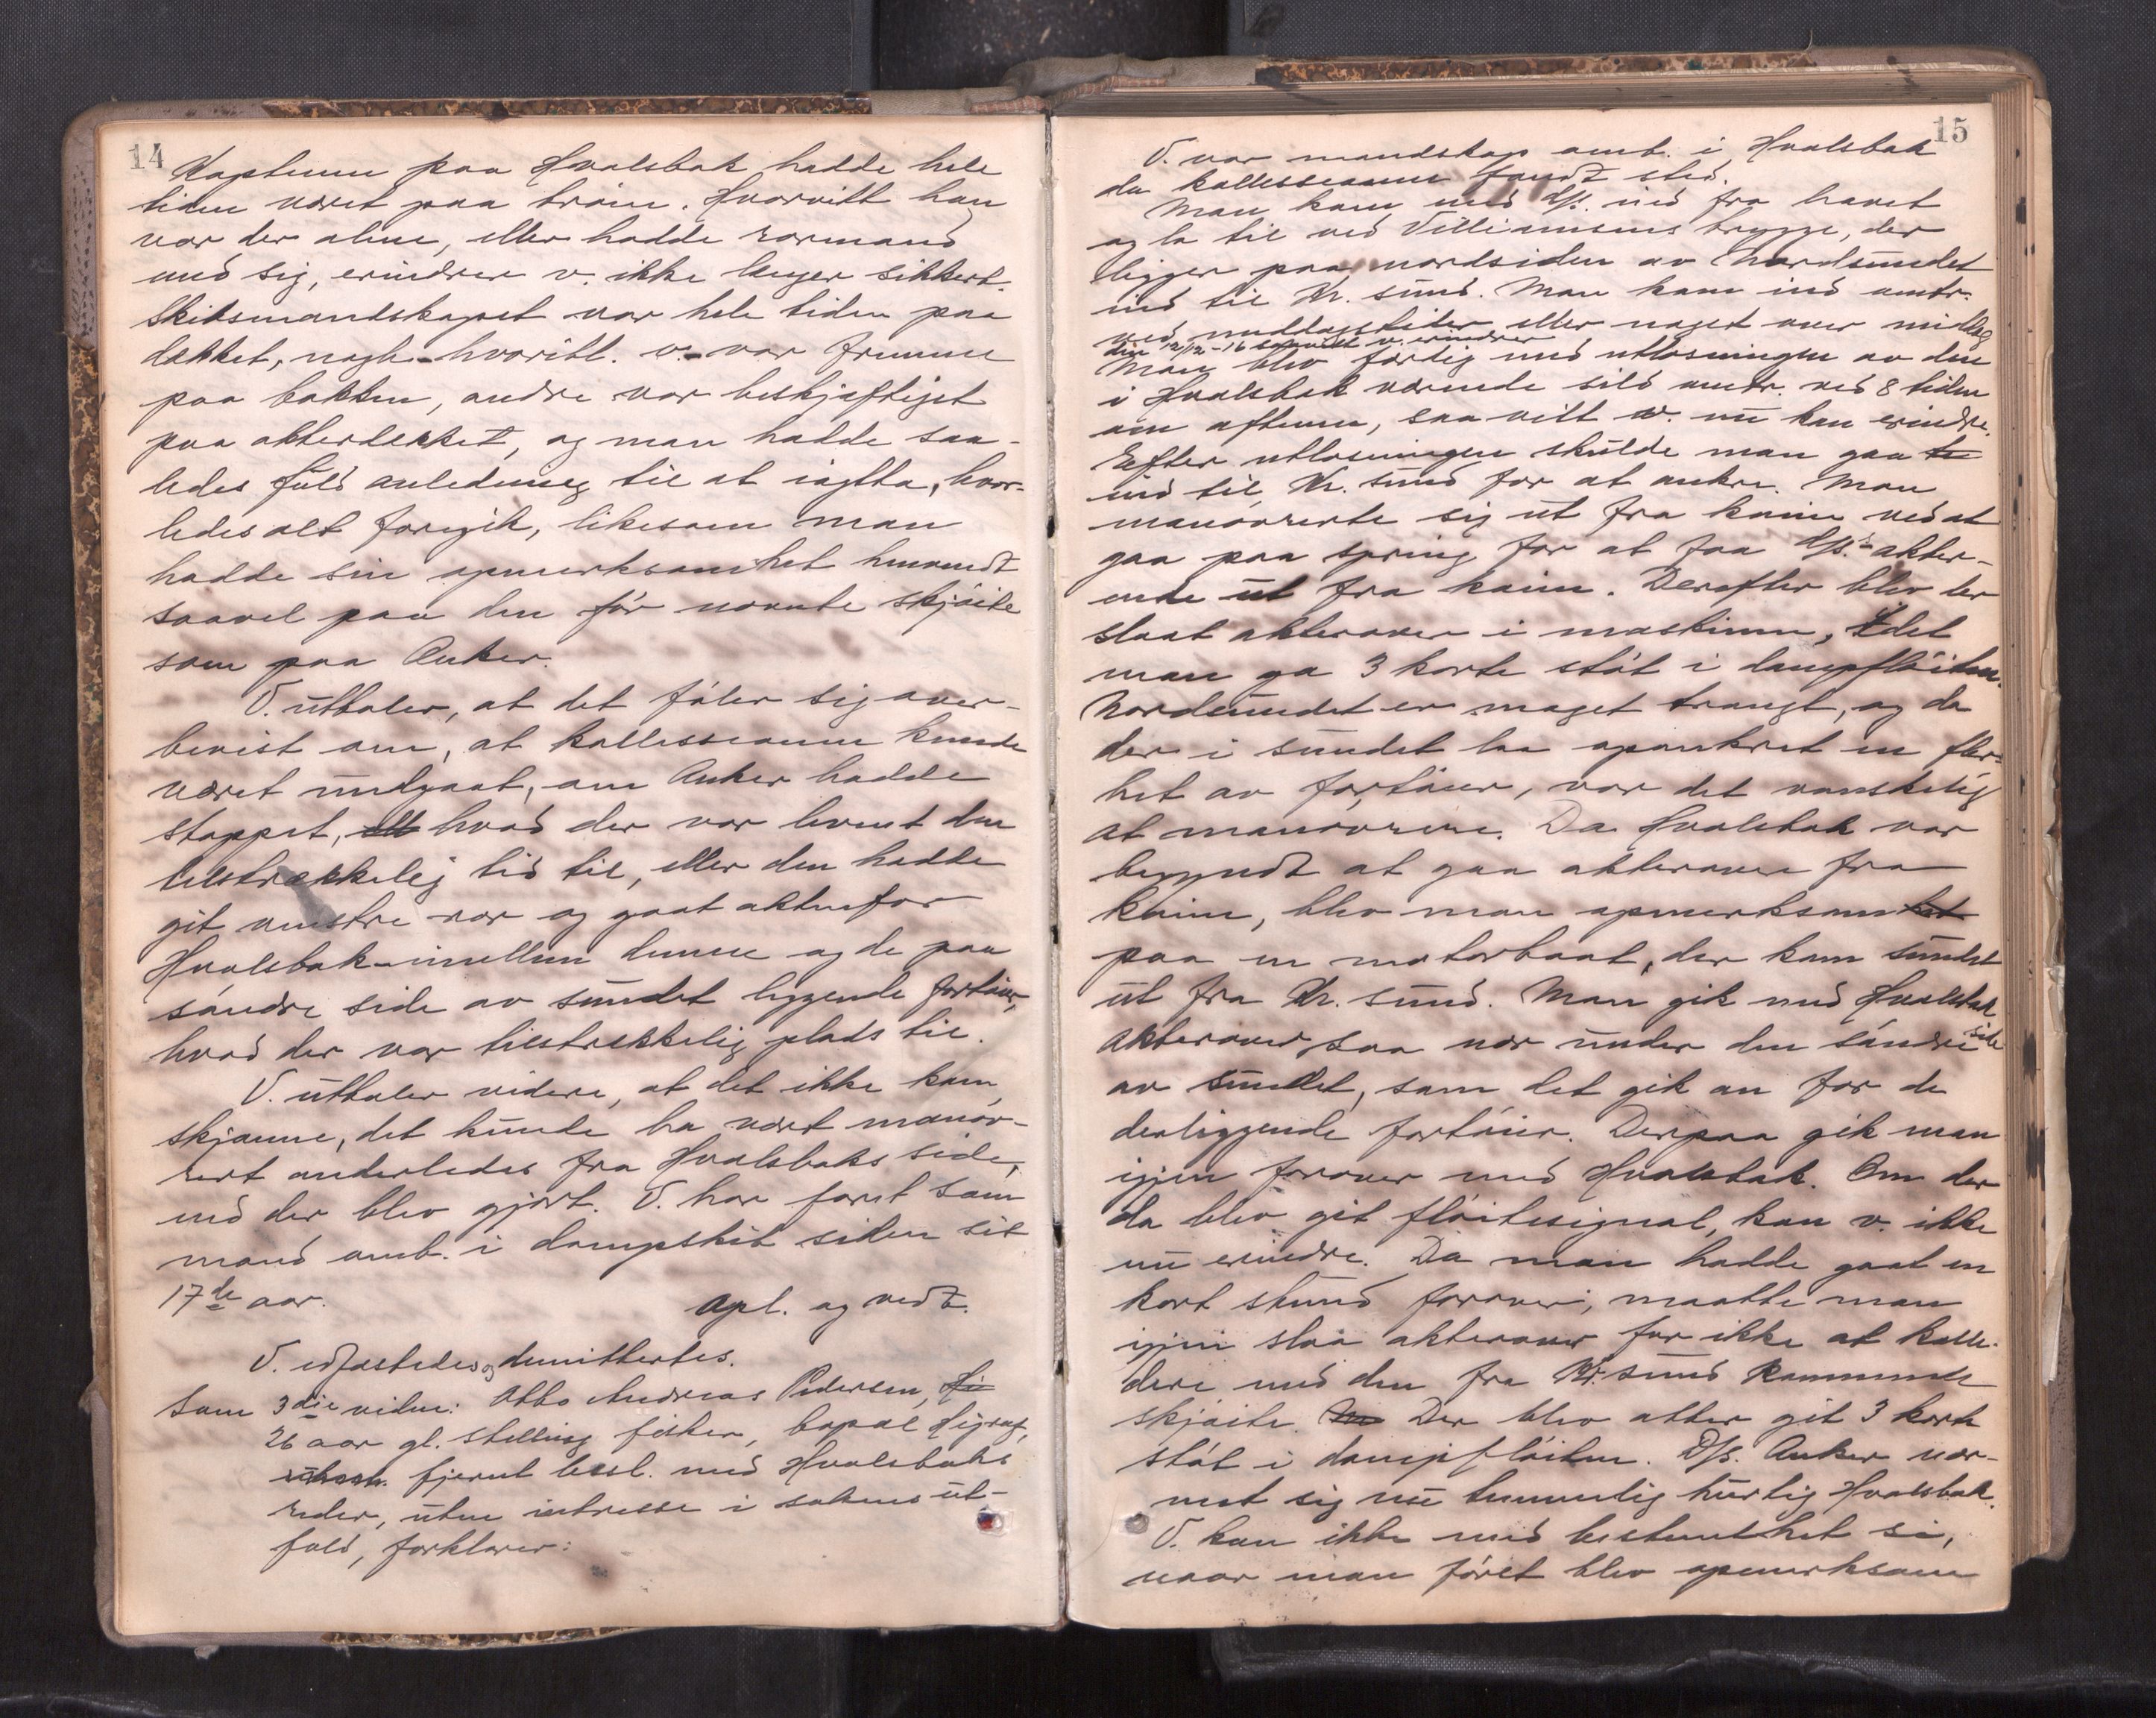 14
Kapteinen paa Hvalsbak hadde hele
tiden været paa broin. Hvorvitt han
var der alene, eller hadde rormand
med sig, erindrer v. ikke længer sikkert.
Skibsmandskapet var hele tiden paa
dækket, nogle hvoribl. v. var fremme
paa bakken, andre var beskjæftiget
paa akterdekket, og man hadde saa-
ledes fuld anledning til at iagtta, hvor-
ledes alt foregik, likesom man
hadde sin opmerksomhet henvendt
saavel paa den før nævnte skjøite
som paa Anker.
V. uttaler, at det føler sig over-
bevist om, at kollisionen kunde
været undgaat, om Anker hadde
stoppet, hvad der var levnet den
tilstrækkelig tid til, eller den hadde
git venstre ror og gaat aktenfor
Hvalsbak imellem denne og de paa
søndre side av sundet liggende fartøier,
hvad der var tilstrekkelig plads til.
V. uttaler videre, at det ikke kan
skjønne, det kunde ha været manøv-
rert anderledes fra Hvalsbaks side,
end der blev gjort. V. har faret som
mand omb. i dampskib siden sit
17de aar.
Opl. og vedt.
V. edfæstedes og demittertes.
Som 3die vidne: Otto Andreas Pedersen,
26 aar gl. stilling fisker, bopæl
fjernt besl. med Hvalsbaks
reder, uten intresse i sakens ut-
fald, forklarer:
15
V. var mandskap omb. i Hvalsbak
da kollisionen fandt sted.
Man kom med D/s. ind fra havet
og la til ved Villiamsens brygge, der
ligger paa nordsiden av Nordsundet
ind til Kr. sund. Man kom ind omtr.
ved middagstider eller noget over middag
den 12/12-16 saavitt v. erindrer
Man blev færdig med utlosningen av den
i Hvalsbak værende sild omtr. ved 8 tiden
om aftenen, saa vitt v. nu kan erindre.
Efter utlosningen skulde man gaa
ind til Kr. sund for at ankre. Man
manøvrerte sig ut fra kaien ved at
gaa paa spring for at faa D/s.'s akter-
ende ut fra kaien. Derefter blev der
slaat akterover i maskinen, idet
man ga 3 korte støt i dampfløiten.
Nordsundet er meget trangt, og da
der i sundet laa opankret en fler-
het av fartøier, var det vanskelig
at manøvrere. Da Hvalsbak var
begyndt at gaa akterover fra
kaien, blev man opmerksom
paa en motorbaat, der kom sundet
ut fra Kr. sund. Man gik med Hvalsbak
akterover saa nær under den søndre side
av sundet, som det gik an for de
derliggende fartøier. Derpaa gik man
igjen forover med Hvalsbak. Om der
da blev git fløitesignal, kan v. ikke
nu erindre. Da man hadde gaat en
kort stund forover, maatte man
igjen slaa akterover for ikke at kolli-
dere med den fra Kr. sund kommende
skjøite. Der blev atter git 3 korte
støt i dampfløiten. D/s. Anker nær-
met sig nu temmelig hurtig Hvalsbak.
V. kan ikke med bestemthet si,
naar man først blev opmerksom